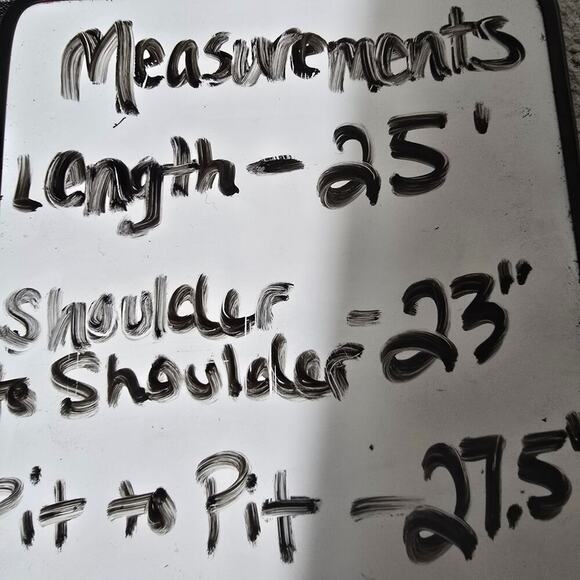 Measurements
Length - 25'
Shoulder
to Shoulder - 23"
Pit to Pit - 27.5"